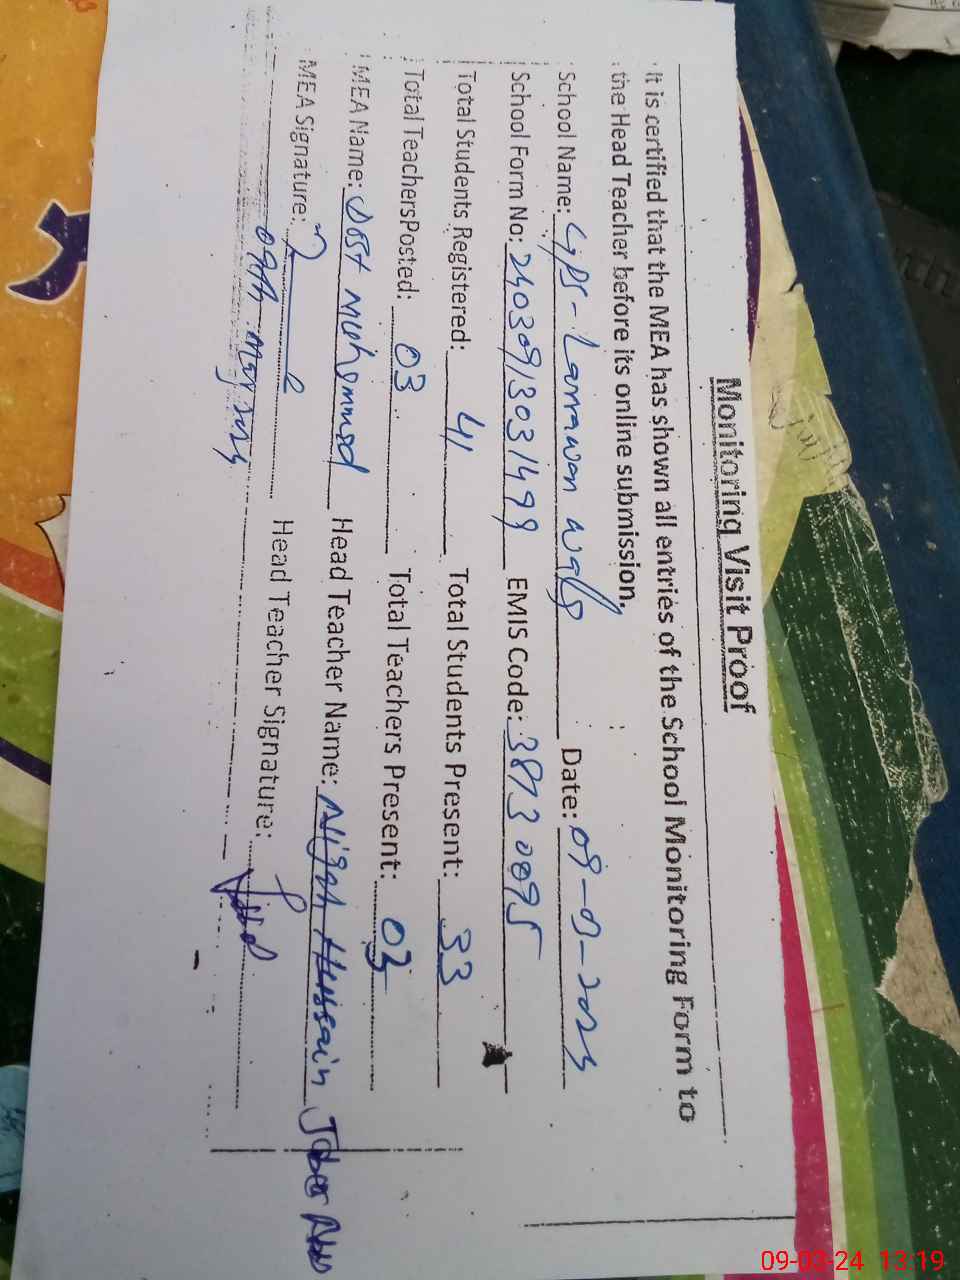 Monitoring Visit Proof
It is certified that the MEA has shown all entries of the School Monitoring Form to
the Head Teacher before its online submission.
School Name: GPS- Date: 09-03-2024
School Form No: 240309/3031499 EMIS Code: 38730095
Total Students Registered: 41 Total Students Present: 33
Total TeachersPosted: 03 Total Teachers Present: 03
MEA Name: Dost Muhammad Head Teacher Name: Hussain
MEA Signature: Head Teacher Signature:
09-03-24 13:19